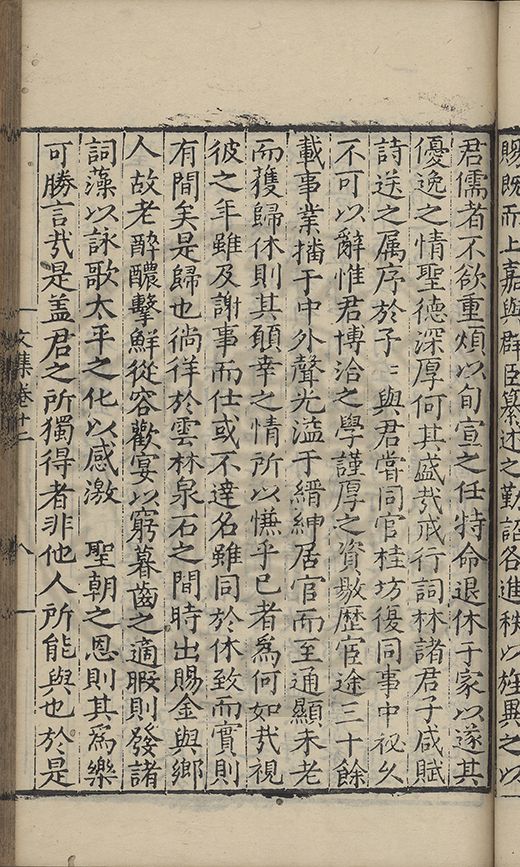 賜既而上嘉與群臣纂述之勤詔各進秩以旌異之以
君儒者不欲重煩以旬宣之任特命退休于家以遂其
優逸之情聖德深厚何其盛㢤戒行詞林諸君子咸賦
詩送之属序於予〻與君嘗同官桂坊復同事中祕久
不可以辭惟君博洽之學謹厚之資敭歷宦途三十餘
載事業播于中外聲光溢于縉紳居官而至通顯未老
而獲歸休則其願幸之情所以慊乎已者為何如㢤視
彼之年雖及謝事而仕或不達名雖同於休致而實則
有間矣是歸也徜徉於雲林泉石之間時出賜金與鄉
人故老酣醲擊鮮從容歡宴以窮暮齒之適暇則發諸
詞藻以詠歌太平之化以感激　聖朝之恩則其為樂
可勝言㢤是盖君之所獨得者非他人所能與也於是
文集卷十二
八